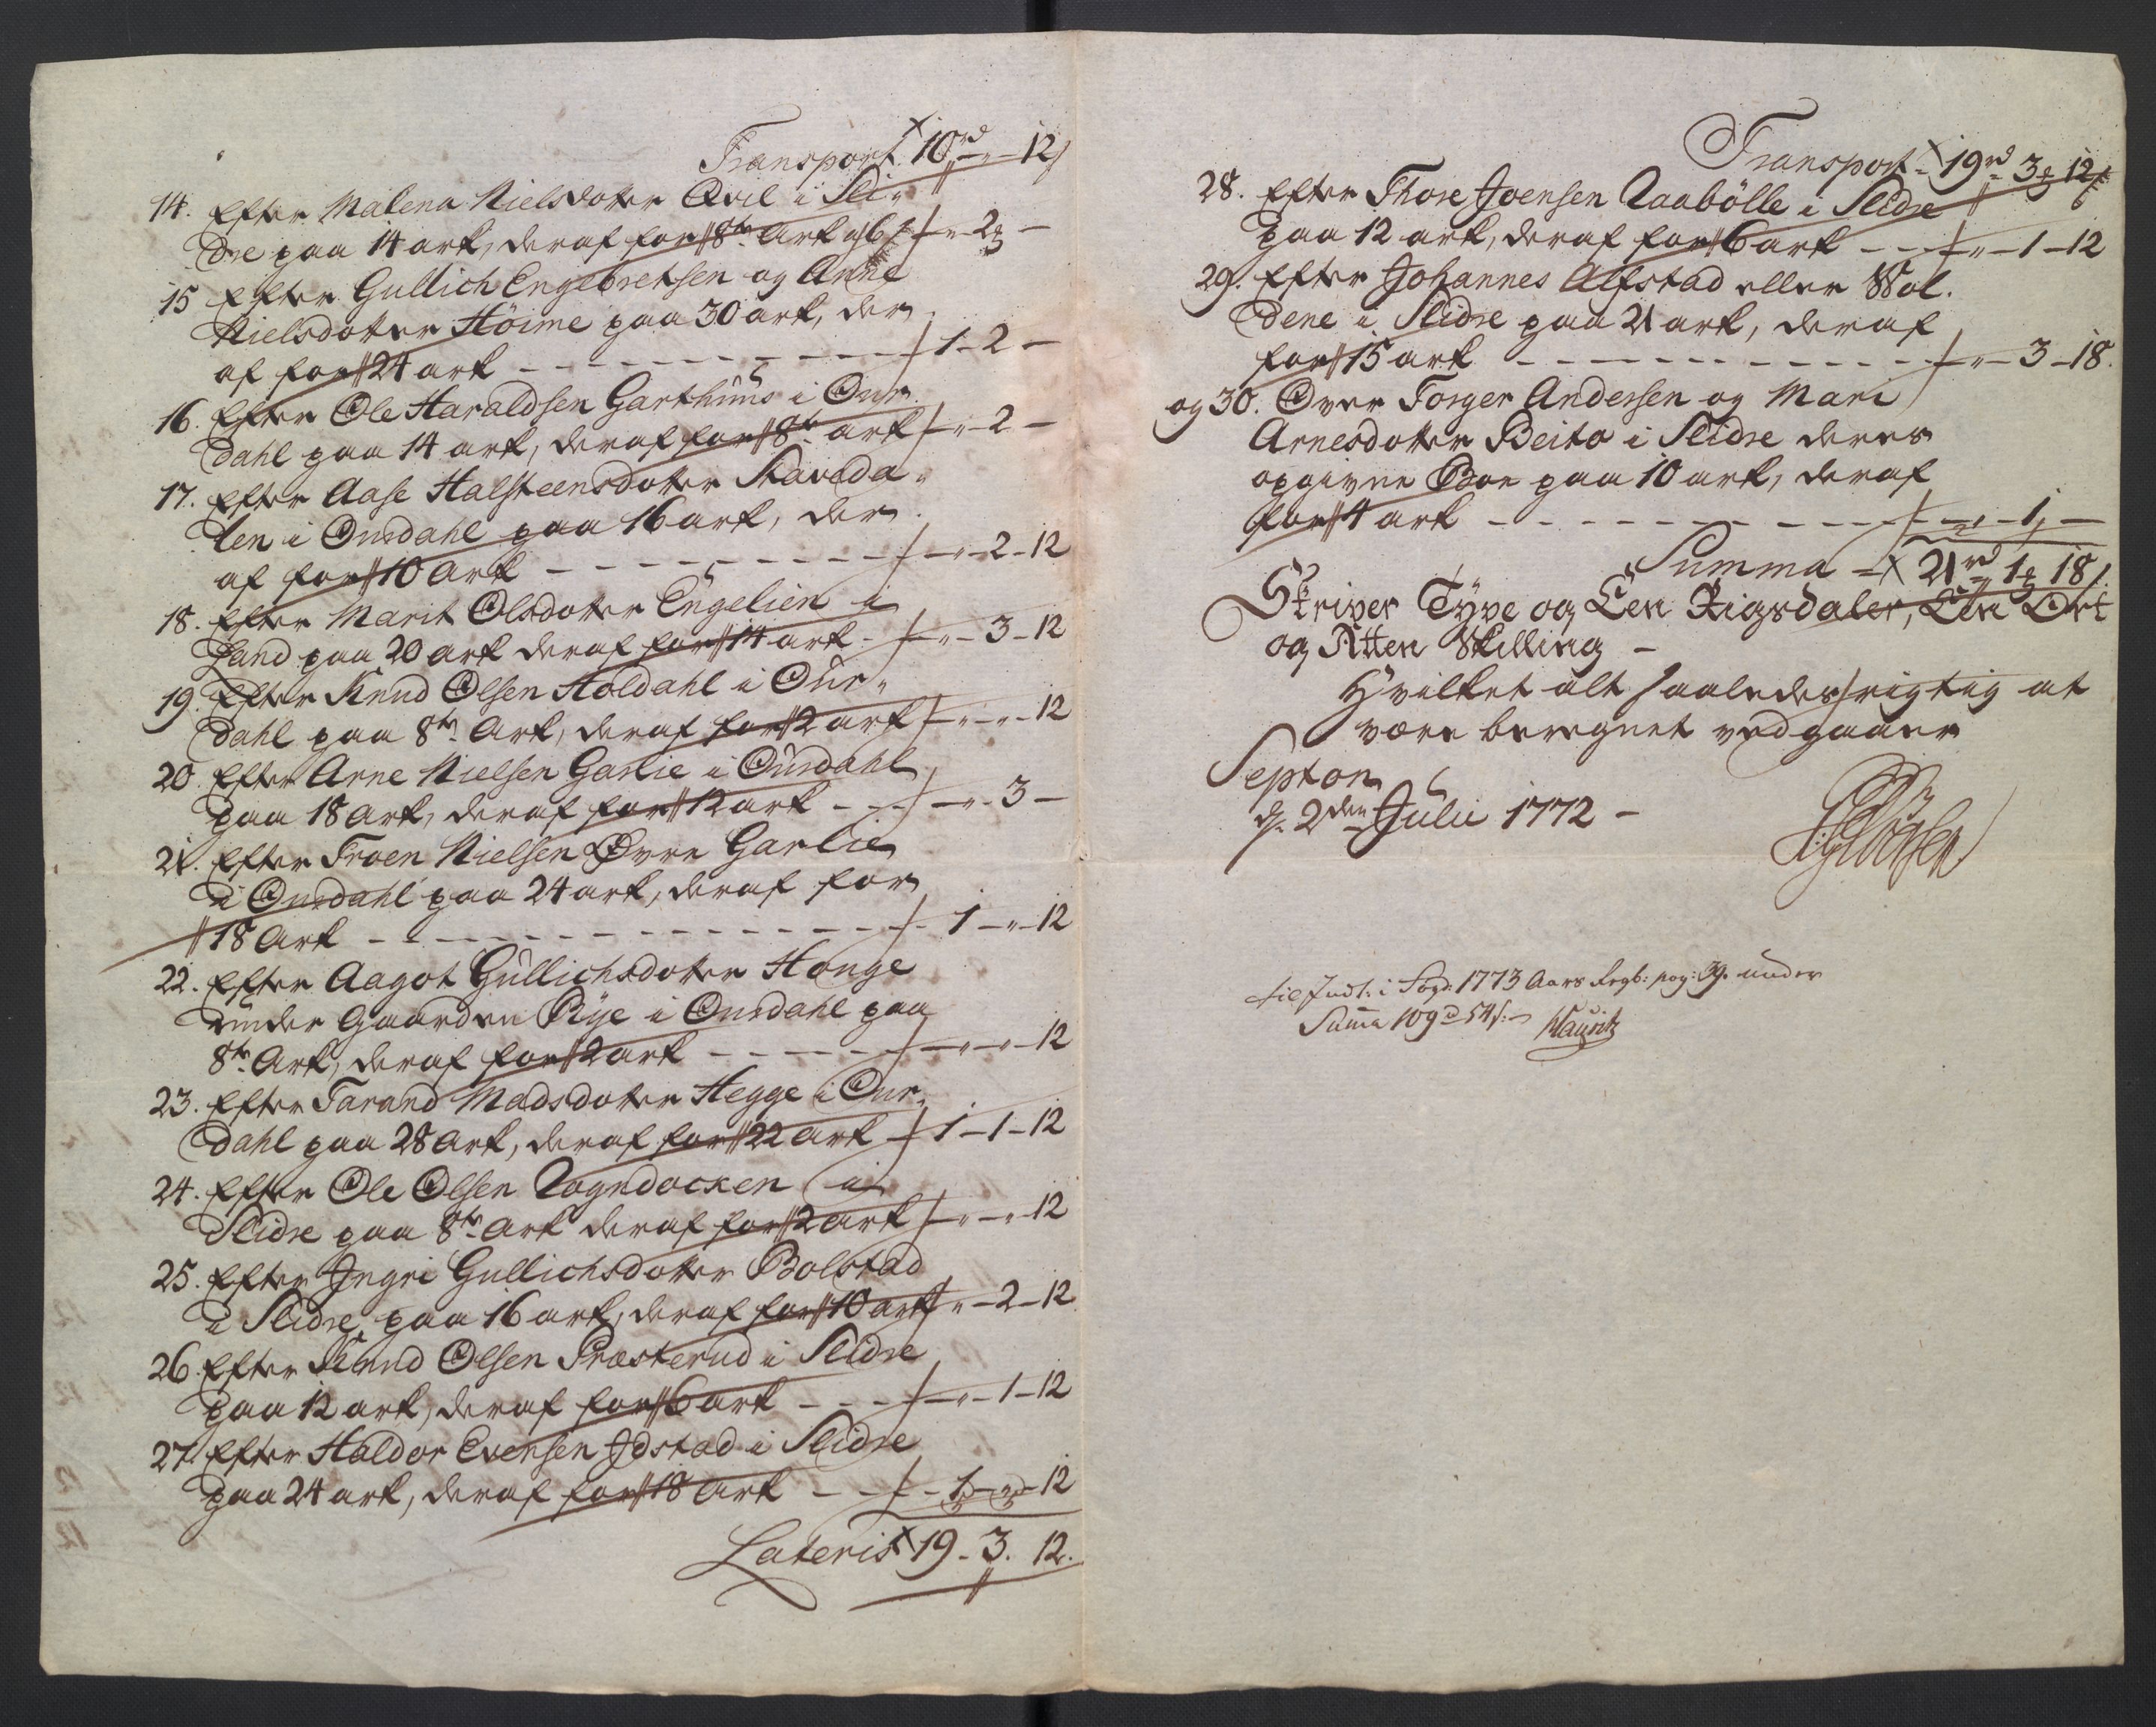 Transport 10rd - " - 12s
14. Efter Malena Nielsdotter Qvil i Sli„
dre paa 14 ark, deraf for 8te Ark a 6s - " - 2 -
15 Efter Gullich Engebretsen og Anne
Nielsdotter Höime paa 30 ark, der„
af for 24 ark - - - 1 - 2 -
16. Efter Ole Haraldsen Garthuus i Our„
dahl paa 14 ark, deraf for 8te ark - " - 2 -
17. Efter Aase Halsteensdotter Skaveda„
len i Ourdahl paa 16 ark, der„
af for 10 Ark - - - " - 2 - 12
18. Efter Marit Olsdotter Engelien i
Land paa 20 ark deraf for 14 ark - " - 3 - 12
19. Efter Knud Olsen Holdahl i Our„
dahl paa 8te Ark, deraf for 2 ark - " - " - 12
20. Efter Arne Nielsen Garlie i Ourdahl
paa 18 Ark, deraf for 12 ark - - - " - 3 -
21. Efter Troen Nielsen Øvre Garlie
i Ourdahl paa 24 ark, deraf for
18 Ark - - - 1 - " - 12
22. Efter Aagot Gullichsdotter Houge
under Gaarden Rye i Ourdahl paa
8te Ark, deraf for 2 ark - - - " - " - 12
23. Efter Tarand Madsdotter Hegge i Our„
dahl paa 28 Ark, deraf for 22 Ark - 1 - 1 - 12
24. Efter Ole Olsen Qogndocken i
Slidre paa 8te Ark deraf for 2 ark - " - " - 12
25. Efter Jngri Gullichsdotter Bolstad
i Slidre paa 16 ark, deraf for 10 ark " - 2 - 12
26. Efter Knud Olsen Præsterud i Slidre
paa 12 ark, deraf for 6 ark - - - " - 1 - 12
27. Efter Haldor Evensen Jdstad i Slidre
paa 24 ark, deraf for 18 Ark - - - 1 - " - 12
Lateris 19 - 3. 12.
Transport - 19rd 3 12s
28. Efter Thore Joensen Qaabölle i Slidre
paa 12 ark, deraf for 6 ark - - - " - 1 - 12
29. Efter Johannes Alfstad eller Wol„
dene i Slidre paa 21 ark, deraf
for 15 ark - - - " - 3 - 18.
og 30. Over Torger Andersen og Mari
Arnesdotter Beito i Slidre deres
opgivne Boe paa 10 ark, deraf
for 4 ark - - - " - 1 -
Summa - 21rd 1 18s.
Skriver Tyve og Een Rigsdaler, Een Ort
og Atten Skilling -
Hvilket alt saaledes rigtig at
være beregnet vedgaaer
Septon
d. 2den Julii 1772 -
til Jndt: i Fogd: 1773 Aars Regb: pag: 39. under
Summa 109rd 54s.